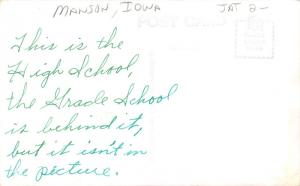 MANSON, IOWA
JAT 2-
POST CARD
This is the
High School,
the Grade School
is behind it,
but it isn't in
the picture.